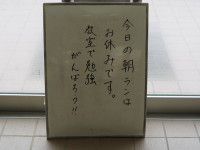 今日の朝ランは
お休みです。
教室で勉強
がんばろう!!